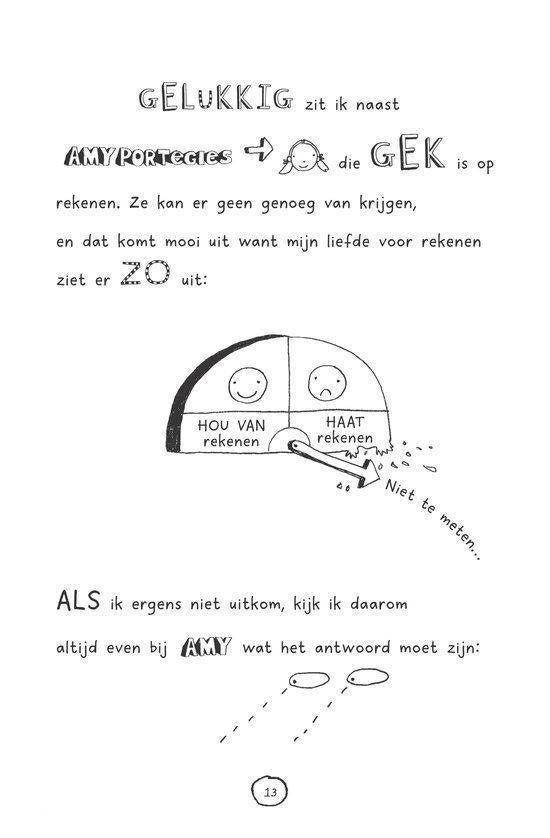 GELUKKIG zit ik naast
AMY PORTEGIES die GEK is op
rekenen. Ze kan er geen genoeg van krijgen,
en dat komt mooi uit want mijn liefde voor rekenen
ziet er ZO uit:
HOU VAN
rekenen
HAAT
rekenen
Niet te meten...
ALS ik ergens niet uitkom, kijk ik daarom
altijd even bij AMY wat het antwoord moet zijn:
13